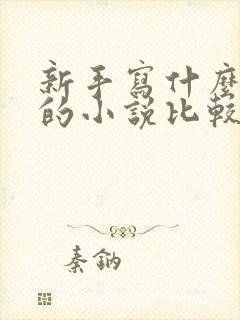 新手寫什麼
的小說比較
秦鈉